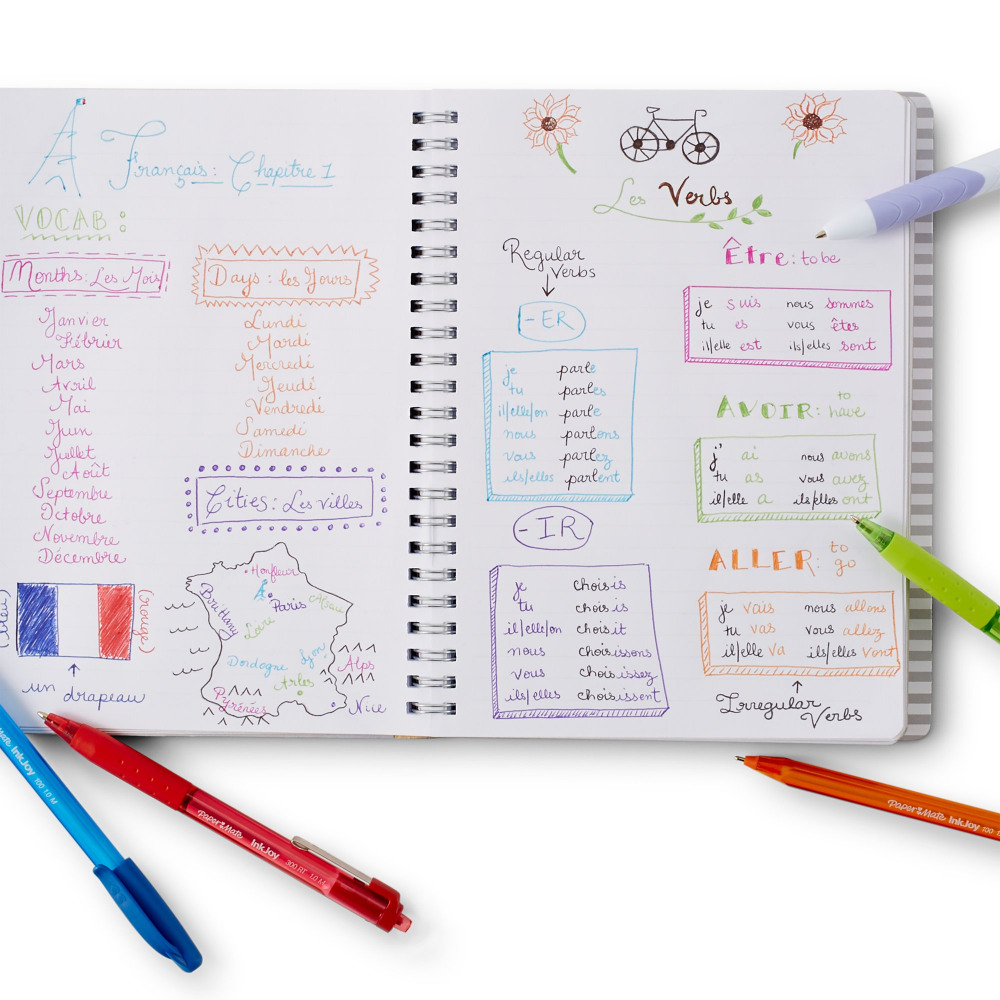 Français: Chapitre 1
VOCAB:
Months: Les Mois
Janvier
Fébrier
Mars
Avril
Mai
Juin
Juillet
Août
Septembre
Octobre
Novembre
Décembre
Days: les Jours
Lundi
Mardi
Mercredi
Jeudi
Vendredi
Samedi
Dimanche
Cities: Les villes
(bleu)
(rouge)
un drapeau
Honfleur
Paris
Brittany
Loire
Dordogne
Arles
Alps
Pyrénées
Nice
Les Verbs
Regular
Verbs
-ER
je parle
tu parles
il/elle/on parle
nous parlons
vous parlez
ils/elles parlent
-IR
je choisis
tu choisis
il/elle/on choisit
nous choisissons
vous choisissez
ils/elles choisissent
Être: to be
je suis nous sommes
tu es vous êtes
il/elle est ils/elles sont
AVOIR: to have
j' ai nous avons
tu as vous avez
il/elle a ils/elles ont
ALLER: to go
je vais nous allons
tu vas vous allez
il/elle va ils/elles vont
Irregular
Verbs
InkJoy 100 1.0 M
Paper Mate InkJoy 300 RT 1.0 M
Paper Mate InkJoy 100